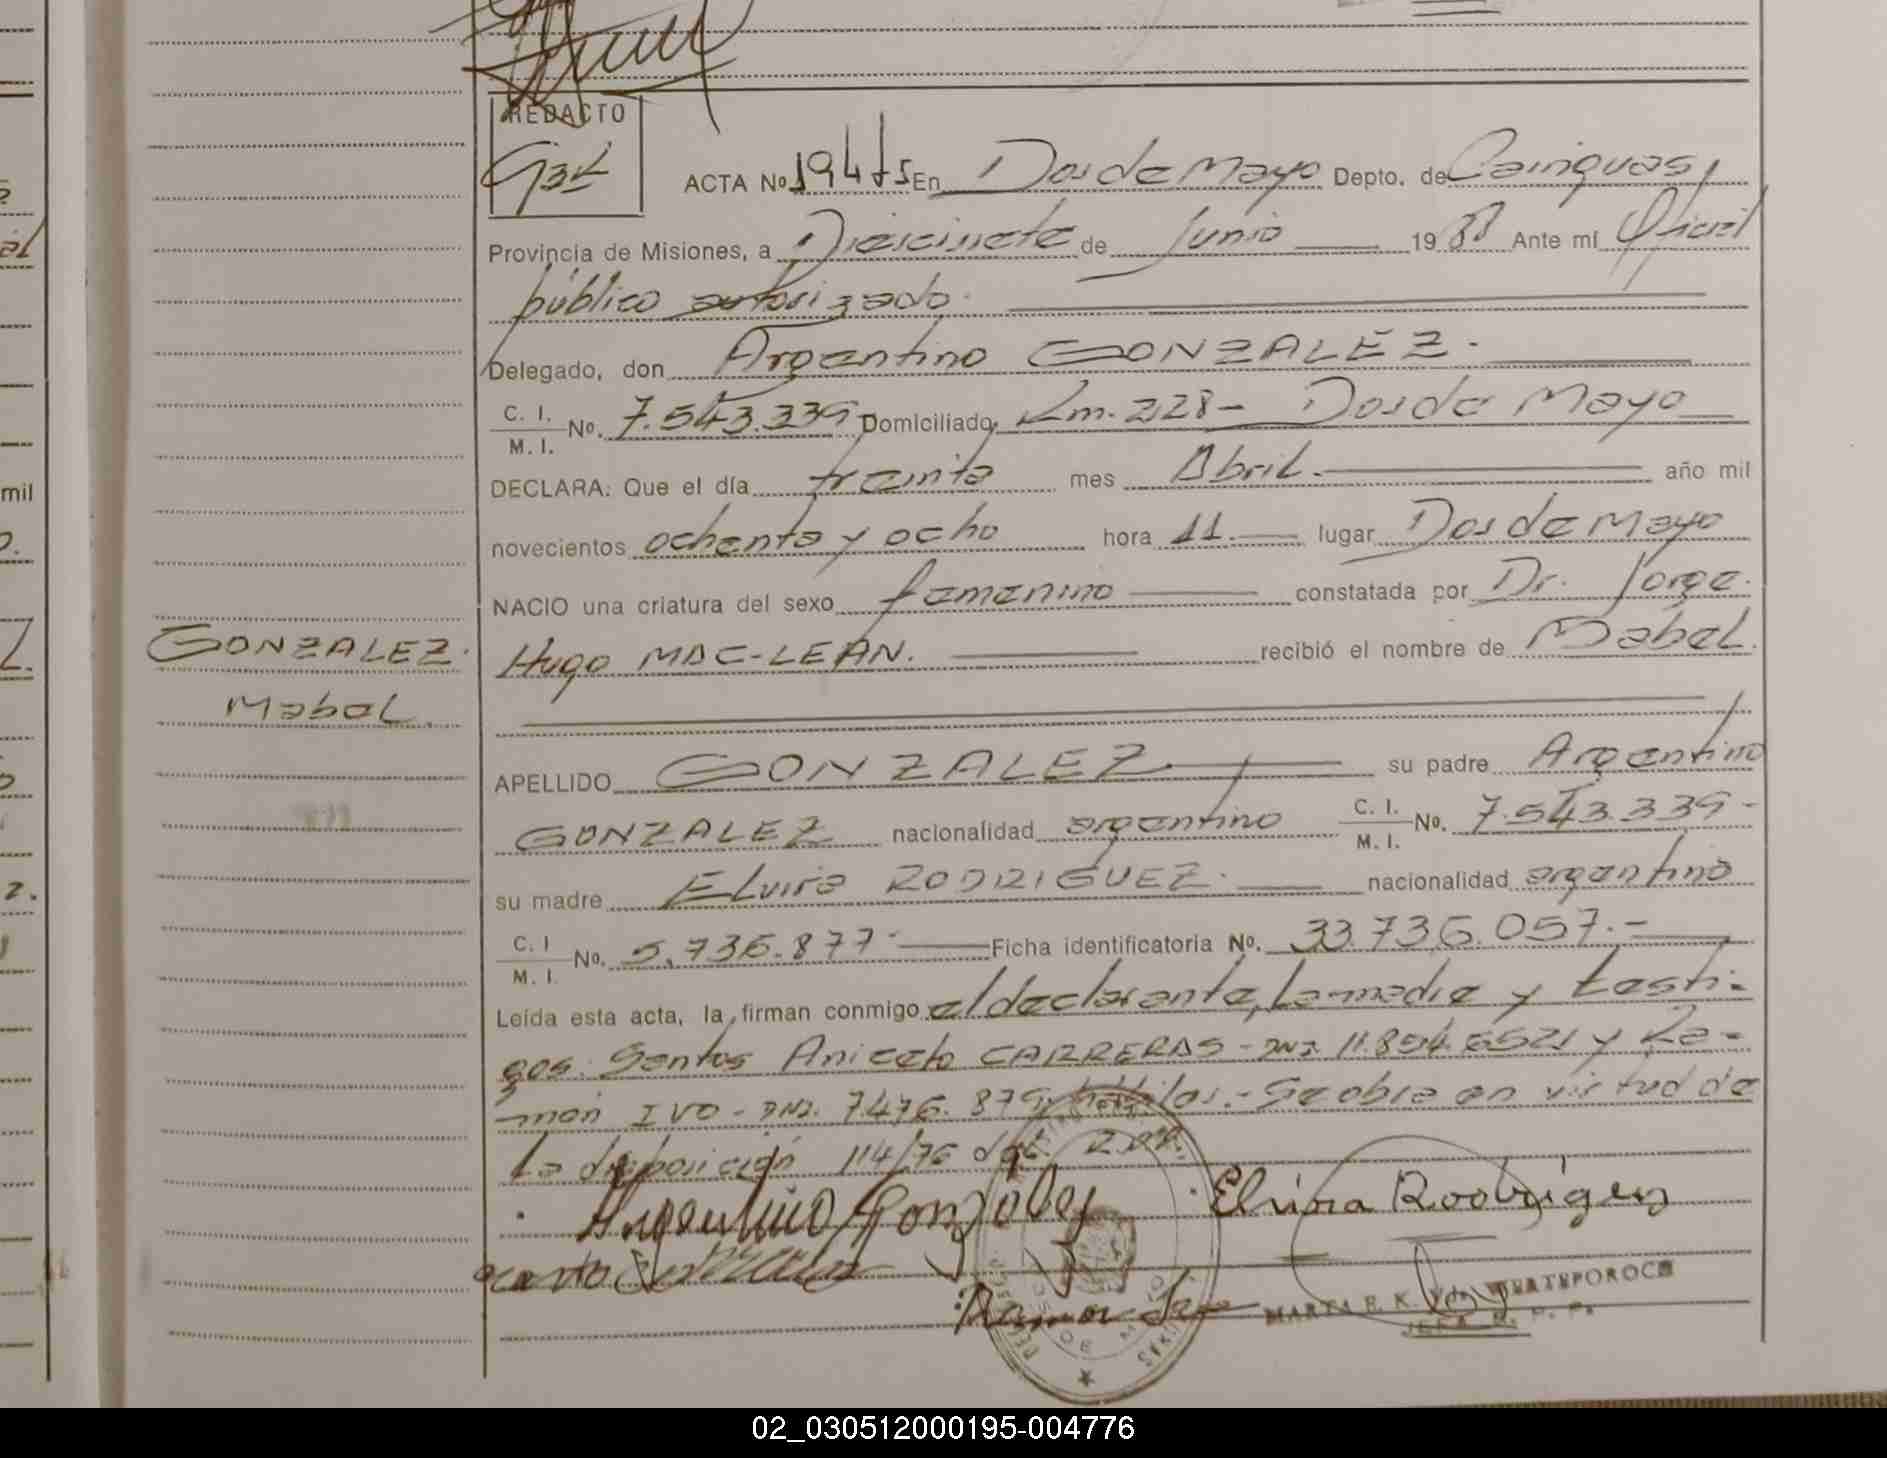 REDACTO
ACTA Nº 194 En Dos de Mayo Depto. de Cainguas,
Provincia de Misiones, a Diecisiete de Junio 1988 Ante mí Oficial
público autorizado.
Delegado, don Argentino GONZALEZ.
C. I. M. I. Nº. 7.543.339 Domiciliado, Km. 228 - Dos de Mayo
DECLARA: Que el día treinta mes Abril. año mil
novecientos ochenta y ocho hora 11. lugar Dos de Mayo
NACIO una criatura del sexo femenino constatada por Dr. Jorge
Hugo MAC-LEAN. recibió el nombre de Mabel.
GONZALEZ.
Mabel.
APELLIDO GONZALEZ su padre Argentino
GONZALEZ nacionalidad argentino C. I. M. I. Nº. 7.543.339-
su madre Elvira RODRIGUEZ. nacionalidad argentino
C. I M. I. Nº. 5.736.877.- Ficha identificatoria Nº. 33.736.057.-
Leída esta acta, la firman conmigo el declarante, la madre y testi-
gos. Santos Aniceto CARRERAS - DNI. y Ra-
mon IVO - DNI. 7.476.879 - Se obra en virtud de
la disposición 114/76 del
Argentino Gonzalez Elvira Rodrigez
Ramon
MARTA E. K.
JEFA
mil
02_030512000195-004776